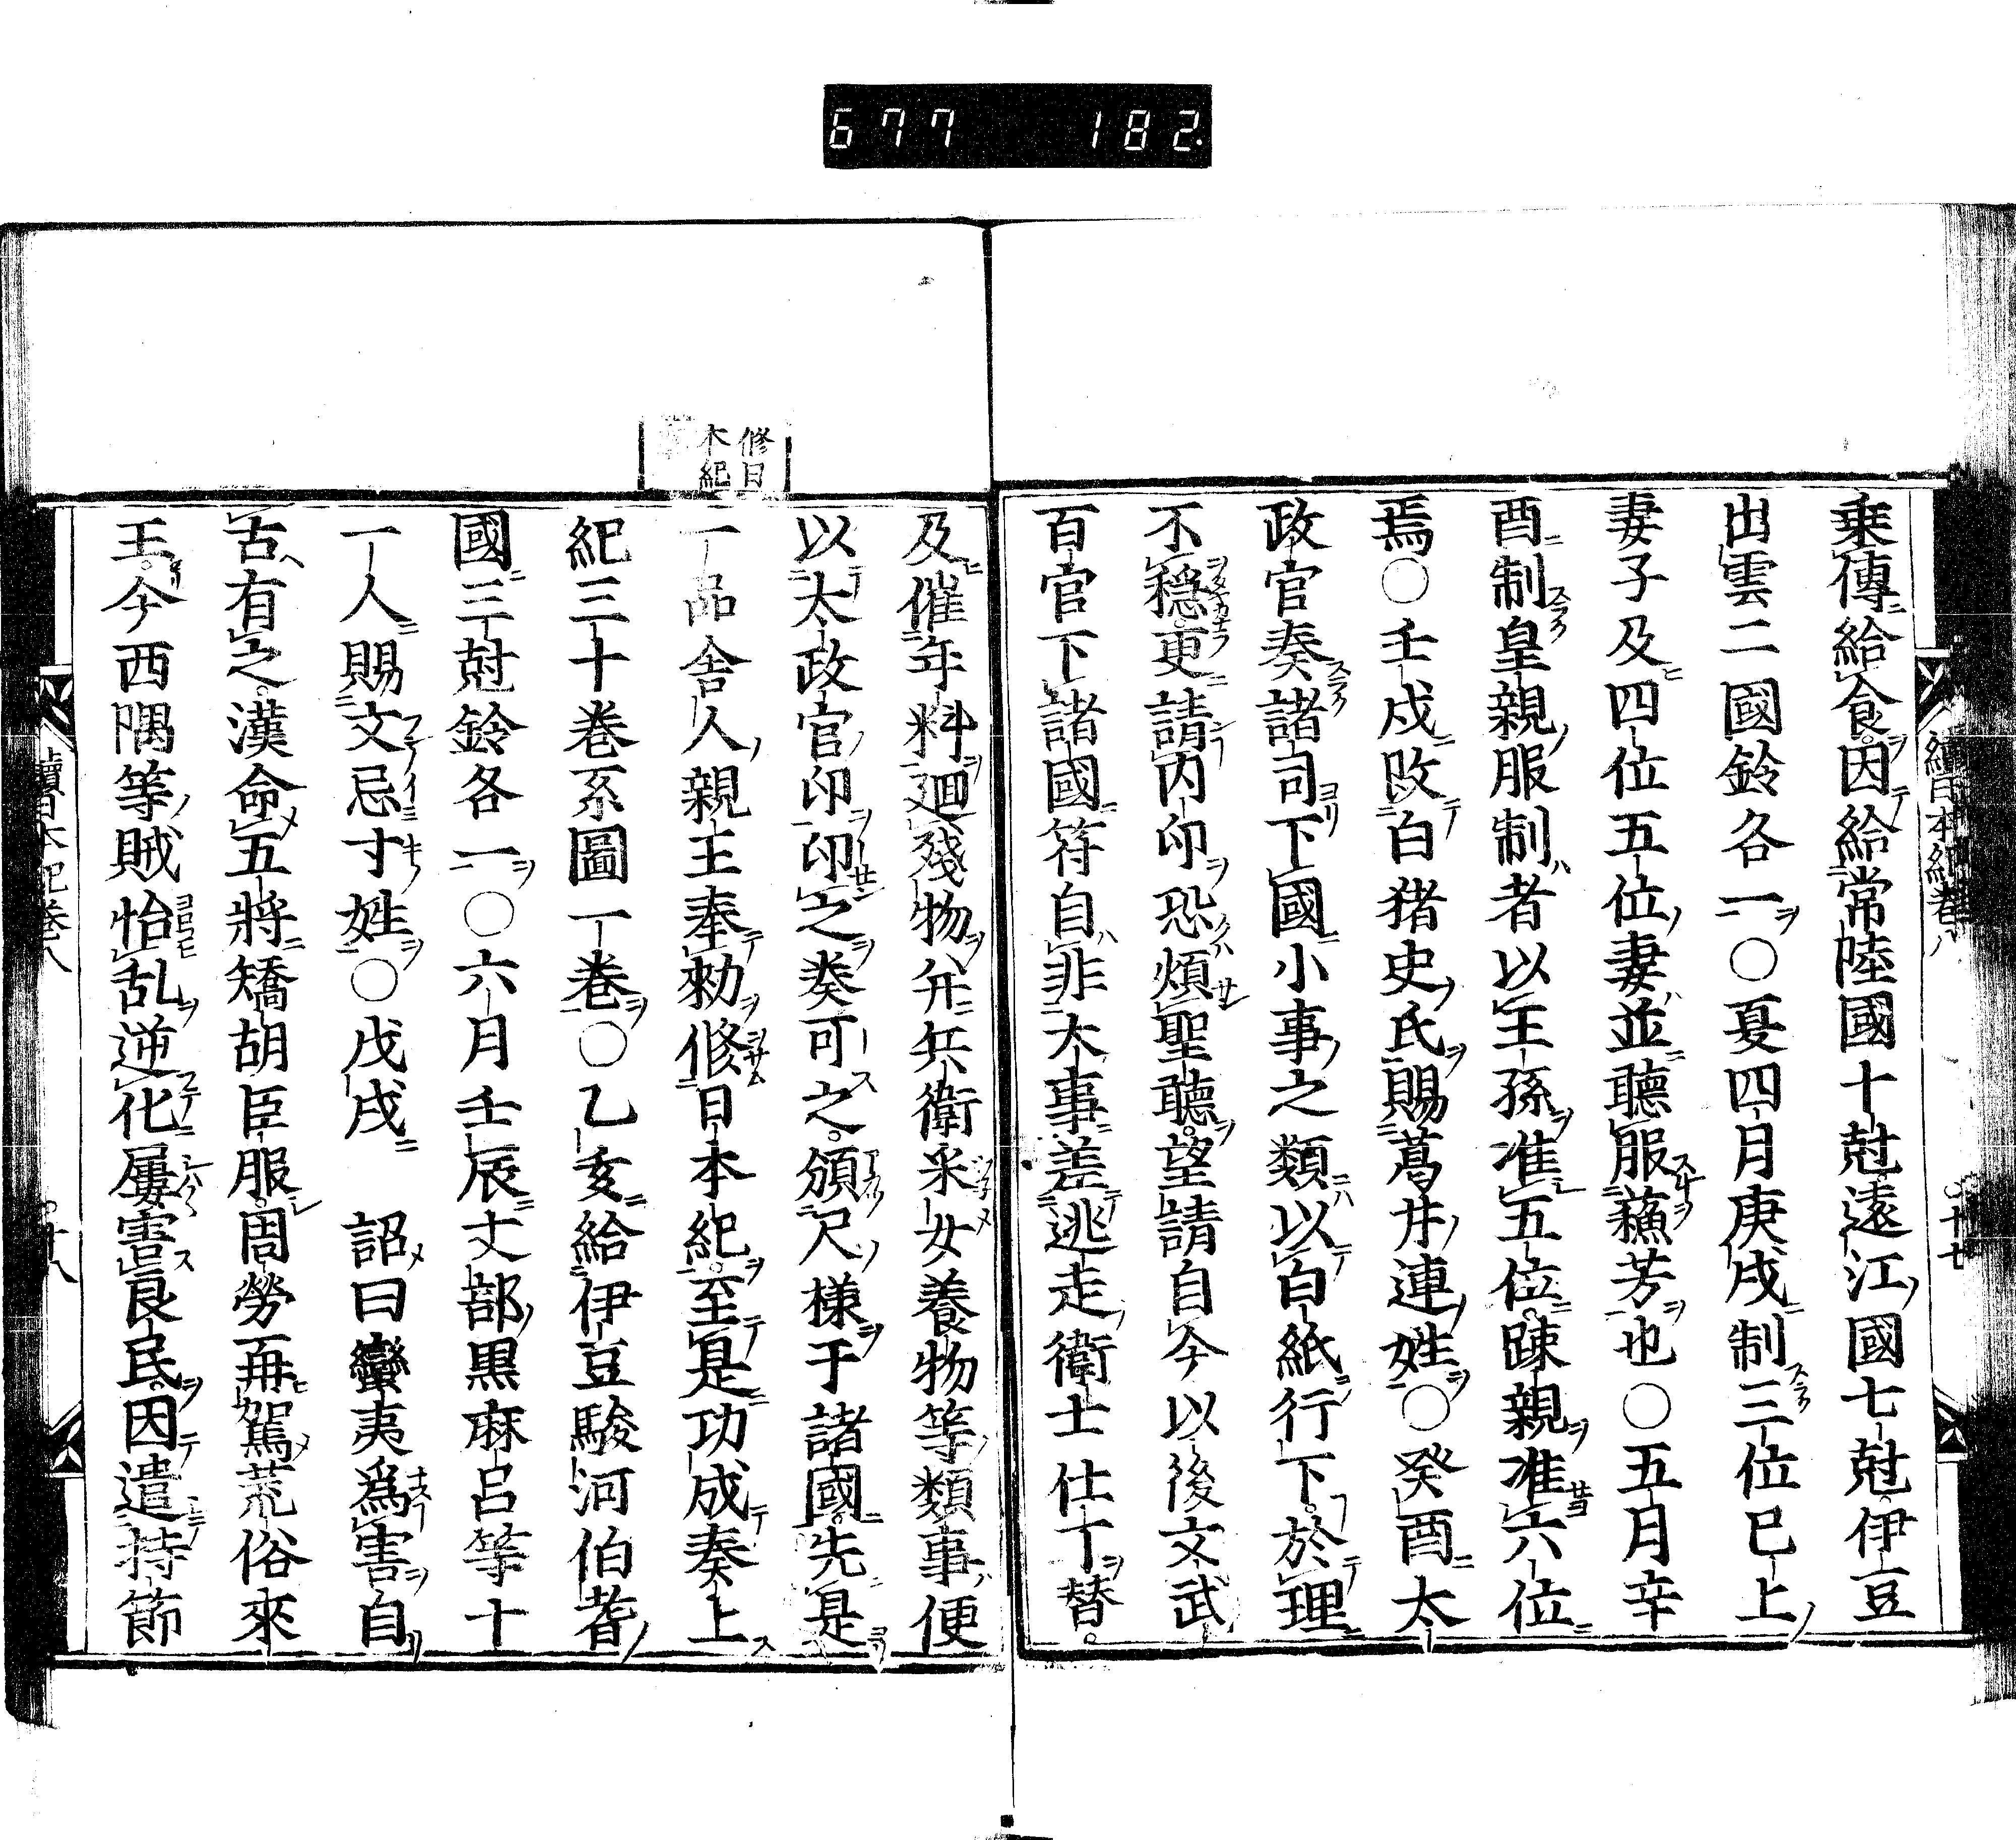 677 182
續日本紀卷八 〇十七
乗傳給食因給常陸國十尅遠江國七尅伊豆
出雲二國鈴各一〇夏四月庚戌制三位已上
妻子及四位五位妻並聽服蘓芳也〇五月辛
酉制皇親服制者以王孫准五位踈親准六位
焉〇壬戌改白猪史氏賜葛井連姓〇癸酉太
政官奏諸司下國小事之類以白紙行下於理
不穏更請内印恐煩聖聽望請自今以後文武
百官下諸國符自非大事差逃走衛士仕丁替
及催年料廻殘物并兵衛采女養物等類事便
以太政官印印之奏可之頒尺様于諸國先是
一品舎人親王奉勅修日本紀至是功成奏上
紀三十巻系圖一巻〇乙亥給伊豆駿河伯耆
國三尅鈴各一〇六月壬辰丈部黒麻呂等十
一人賜文忌寸姓〇戊戌 詔曰蠻夷爲害自
古有之漢命五將矯胡臣服周勞再駕荒俗來
王今西隅等賊怡乱逆化屢害良民因遣持節
修日
本紀
續日本紀卷八 〇十八